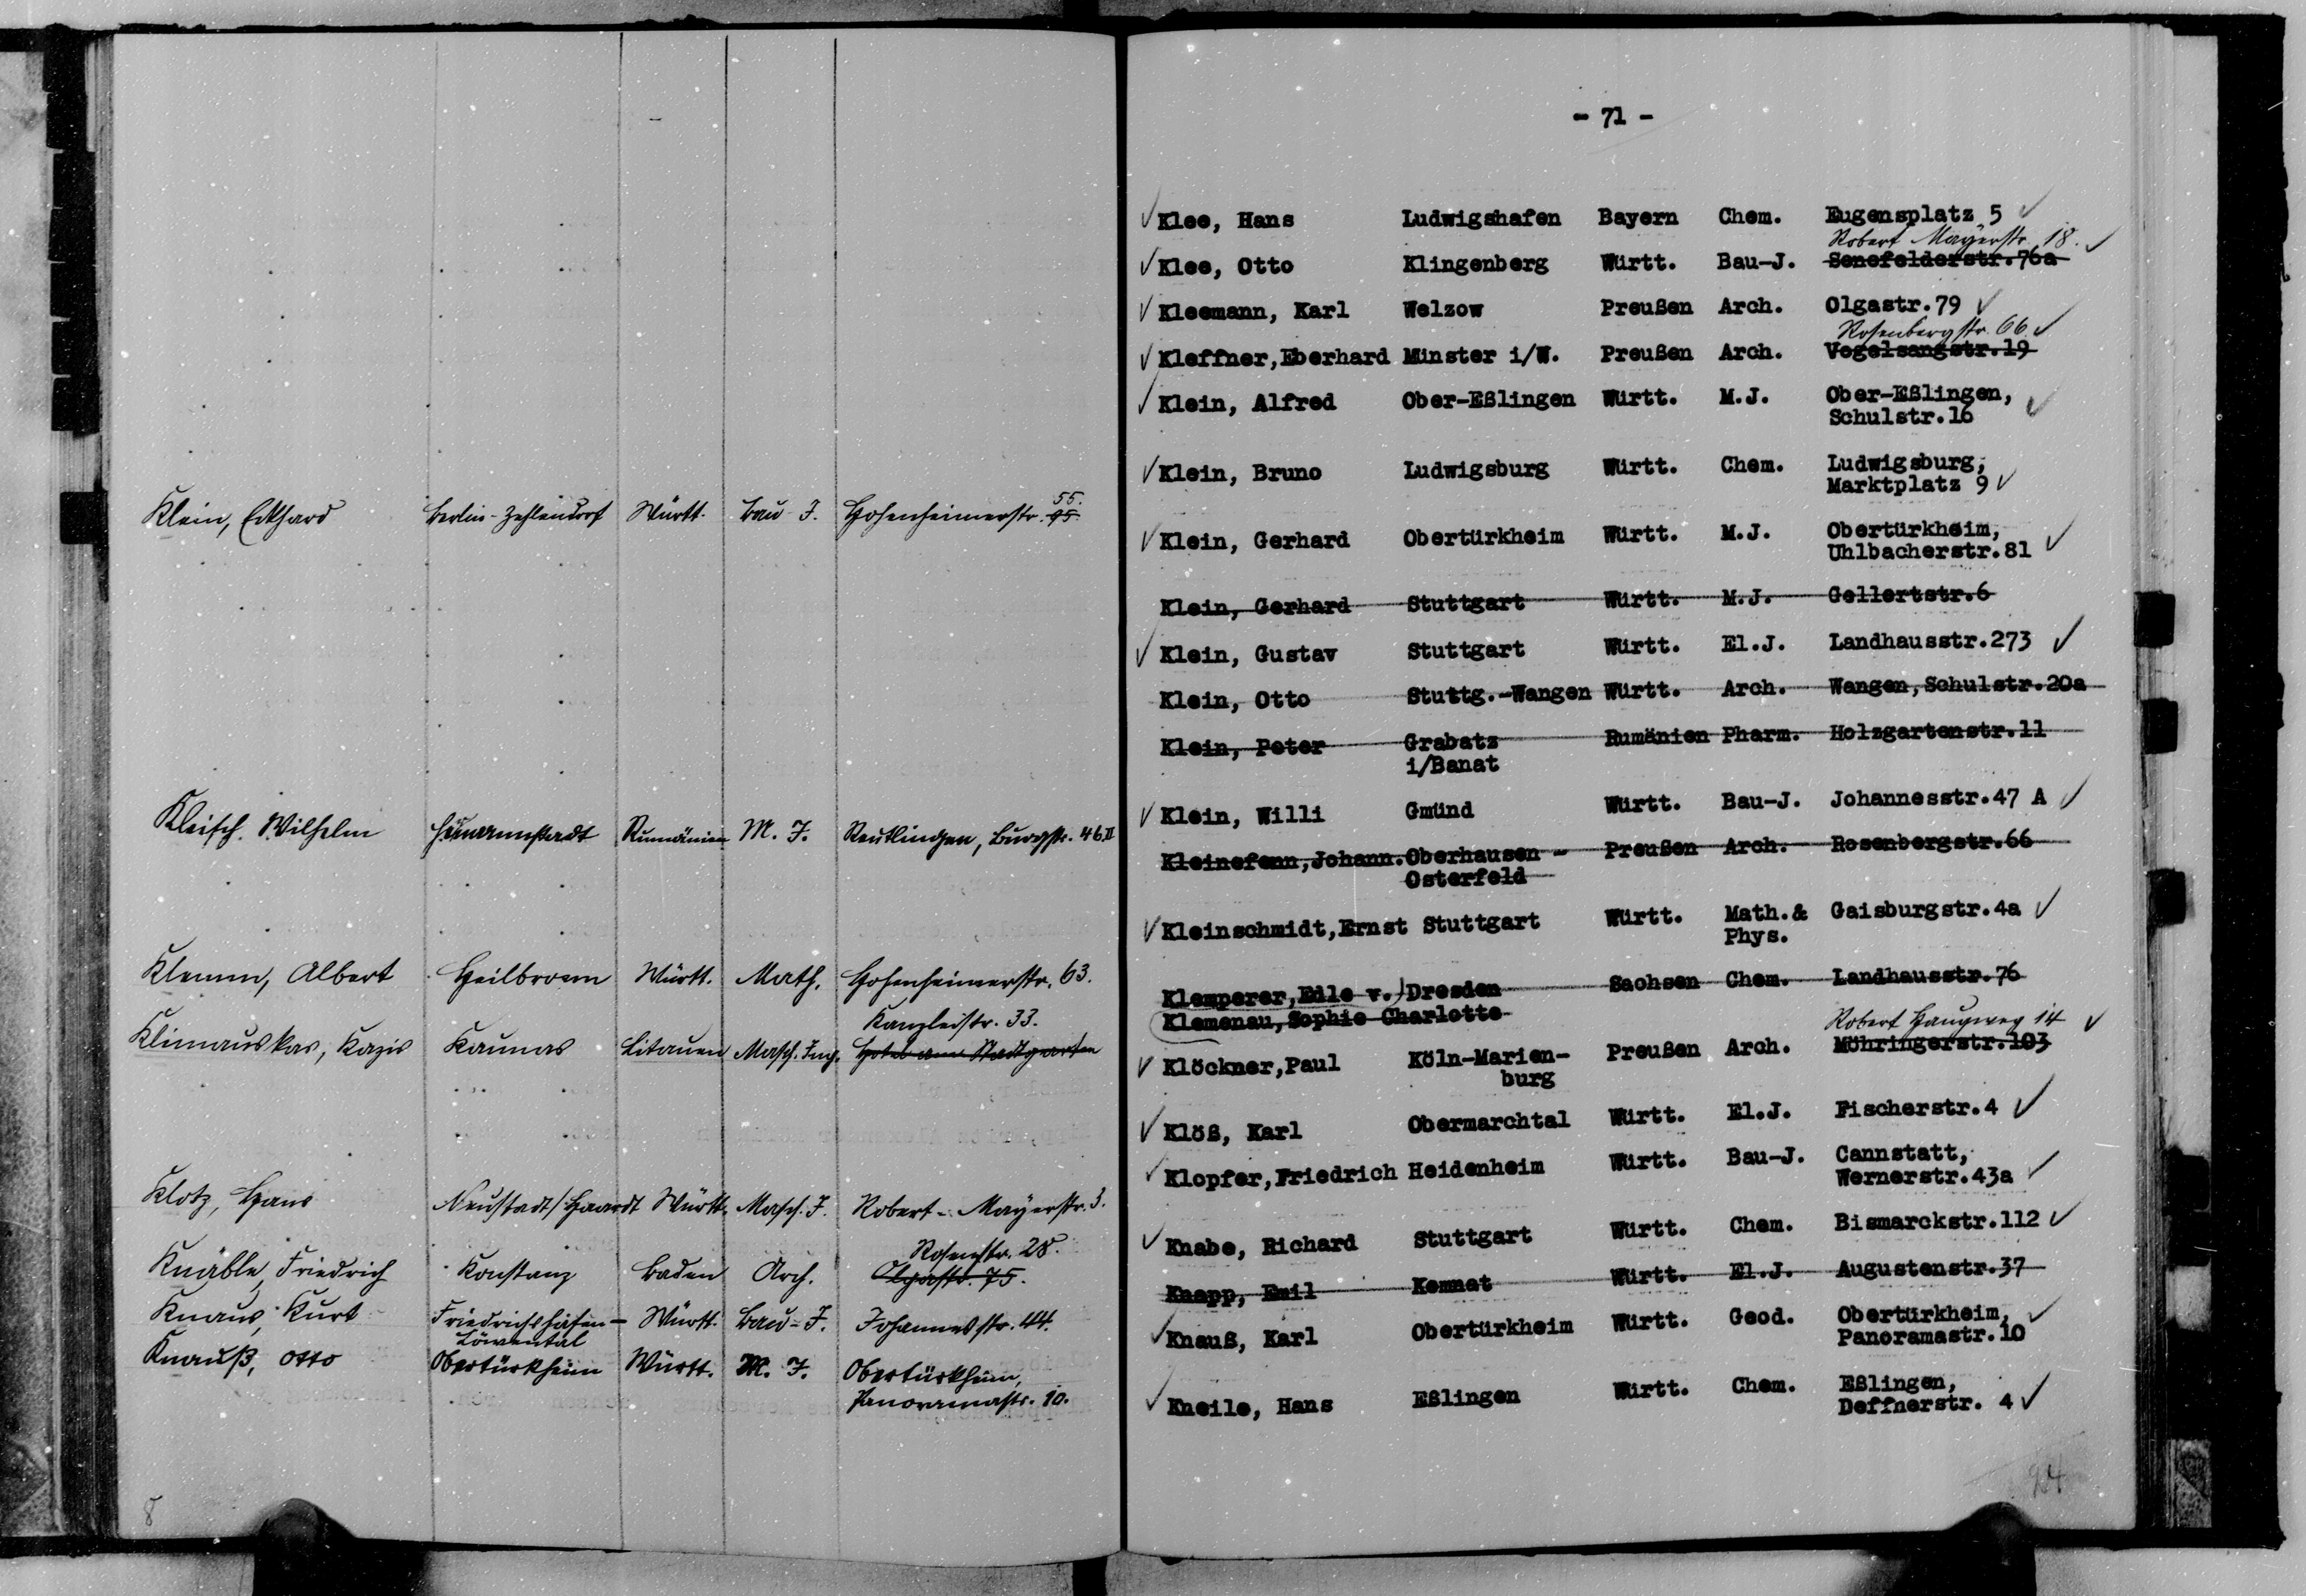 Klein, Eckhard Berlin-Zehlendorf Württ. Bau-J. Hohenheimerstr. 95. 55.
Kleisch. Wilhelm Hermannstadt Rumänien M. J. Reutlingen, Burgstr. 46 II
Klemm, Albert Heilbronn Württ. Math. Hohenheimerstr. 63.
Kanzleistr. 33.
Klimauskas, Kazis Kaunas Litauen Masch. Ing. Hotel am Stadtgarten
Klotz, Hans Neustadt/Haardt Württ. Masch. J. Robert-Mayerstr. 3.
Rosenstr. 28.
Knäble, Friedrich Konstanz Baden Arch. Olgastr. 75.
Knaus, Kurt Friedrichshafen- Württ. Bau-J. Johannesstr. 44.
Löwental
Knauß, Otto Obertürkheim Württ. M. J. Obertürkheim,
Panoramastr. 10.
8
- 71 -
Klee, Hans Ludwigshafen Bayern Chem. Eugensplatz 5
Robert Mayerstr. 18.
Klee, Otto Klingenberg Württ. Bau-J. Senefelderstr.76a
Kleemann, Karl Welzow Preußen Arch. Olgastr.79
Rosenbergstr. 66
Kleffner,Eberhard Münster i/W. Preußen Arch. Vogelsangstr.19
Klein, Alfred Ober-Eßlingen Württ. M.J. Ober-Eßlingen,
Schulstr.16
Klein, Bruno Ludwigsburg Württ. Chem. Ludwigsburg,
Marktplatz 9
Klein, Gerhard Obertürkheim Württ. M.J. Obertürkheim,
Uhlbacherstr.81
Klein, Gerhard Stuttgart Württ. M.J. Gellertstr.6
Klein, Gustav Stuttgart Württ. El.J. Landhausstr.273
Klein, Otto Stuttg.-Wangen Württ. Arch. Wangen,Schulstr.20a
Klein, Peter Grabatz Rumänien Pharm. Holzgartenstr.11
i/Banat
Klein, Willi Gmünd Württ. Bau-J. Johannesstr.47 A
Kleinefenn,Johann.Oberhausen - Preußen Arch. Rosenbergstr.66
Osterfeld
Kleinschmidt,Ernst Stuttgart Württ. Math.& Gaisburgstr.4a
Phys.
Klemperer,Edle v.)Dresden Sachsen Chem. Landhausstr.76
Klemenau,Sophie Charlotte
Robert Haugweg 14
Klöckner,Paul Köln-Marien- Preußen Arch. Möhringerstr.103
burg
Klöß, Karl Obermarchtal Württ. El.J. Fischerstr.4
Klopfer,Friedrich Heidenheim Württ. Bau-J. Cannstatt,
Wernerstr.43a
Knabe, Richard Stuttgart Württ. Chem. Bismarckstr.112
Knapp, Emil Kemnat Württ. El.J. Augustenstr.37
Knauß, Karl Obertürkheim Württ. Geod. Obertürkheim,
Panoramastr.10
Kneile, Hans Eßlingen Württ. Chem. Eßlingen,
Deffnerstr. 4
24